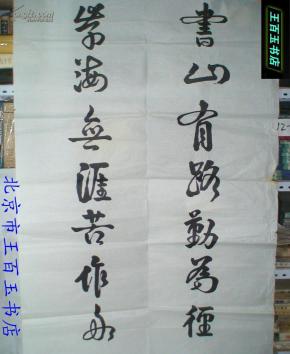 書山有路勤為徑
學海無涯苦作舟
王百玉书店
北京市王百玉书店